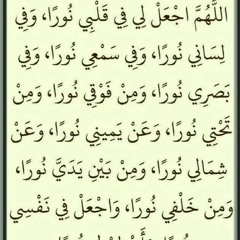 اللَّهُمَّ اجْعَلْ لِي فِي قَلْبِي نُورًا، وَفِي
لِسَانِي نُورًا، وَفِي سَمْعِي نُورًا، وَفِي
بَصَرِي نُورًا، وَمِنْ فَوْقِي نُورًا، وَمِنْ
تَحْتِي نُورًا، وَعَنْ يَمِينِي نُورًا، وَعَنْ
شِمَالِي نُورًا، وَمِنْ بَيْنِ يَدَيَّ نُورًا،
وَمِنْ خَلْفِي نُورًا، وَاجْعَلْ فِي نَفْسِي